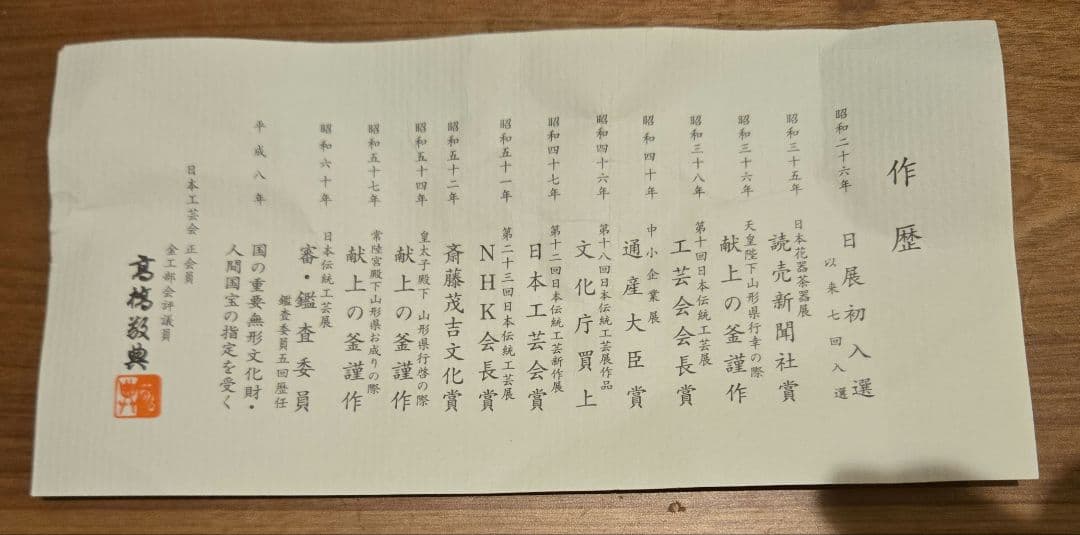 作歴
昭和二十六年 日展初入選
以来七回入選
昭和三十五年 日本花器茶器展
読売新聞社賞
昭和三十六年 天皇陛下山形県行幸の際
献上の釜謹作
昭和三十八年 第十回日本伝統工芸展
工芸会会長賞
昭和四十年 中小企業展
通産大臣賞
昭和四十六年 第十八回日本伝統工芸展作品
文化庁買上
昭和四十七年 第十二回日本伝統工芸新作展
日本工芸会賞
昭和五十一年 第二十三回日本伝統工芸展
NHK会長賞
昭和五十二年 斎藤茂吉文化賞
昭和五十四年 皇太子殿下山形県行啓の際
献上の釜謹作
昭和五十七年 常陸宮殿下山形県お成りの際
献上の釜謹作
昭和六十年 日本伝統工芸展
審・鑑査委員
鑑査委員五回歴任
平成八年 国の重要無形文化財・
人間国宝の指定を受く
日本工芸会 正会員
金工部会評議員
高橋敬典